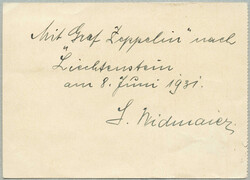 Mit Graf Zeppelin" nach
"Liechtenstein
am 8. Juni 1931.
S. Widmaier